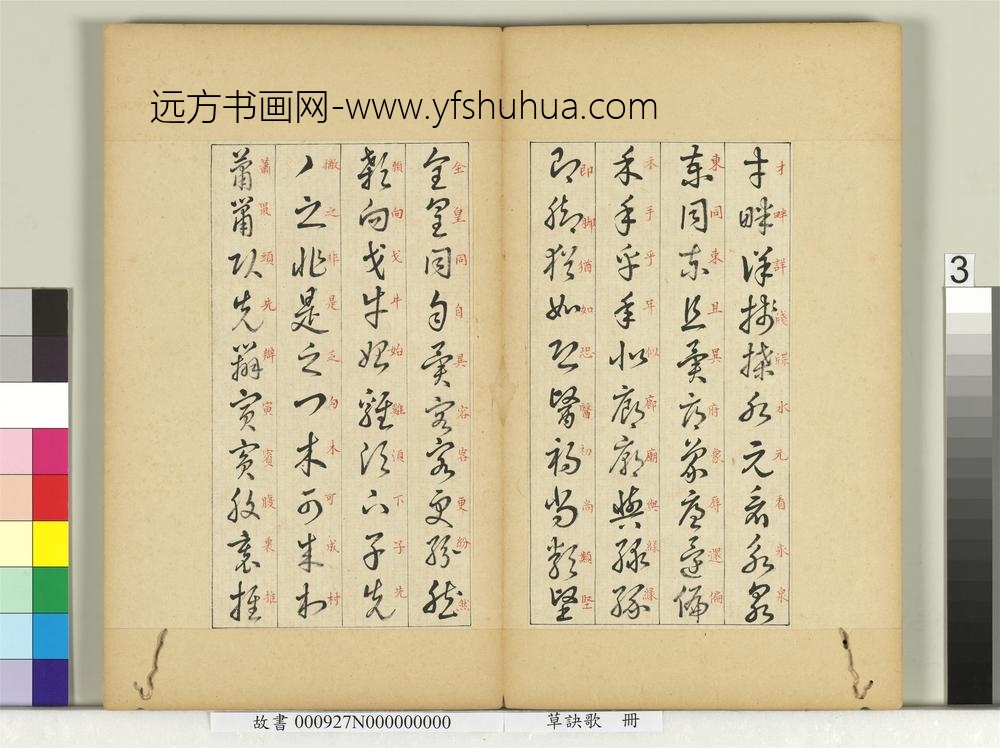 远方书画网-www.yfshuhua.com
才畔詳牋牒水元看永泉
東同東且異府象辱還偏
禾手乎年似廊廟與綠緣
即脚猶如恐醫初尚類堅
全皇同自異容客更紛然
賴向戈牛始雞須下子先
撇之非是乏勾木可成村
蕭鼠頭先辦寅賓腹裏推
3
故書 000927N000000000
草訣歌 冊